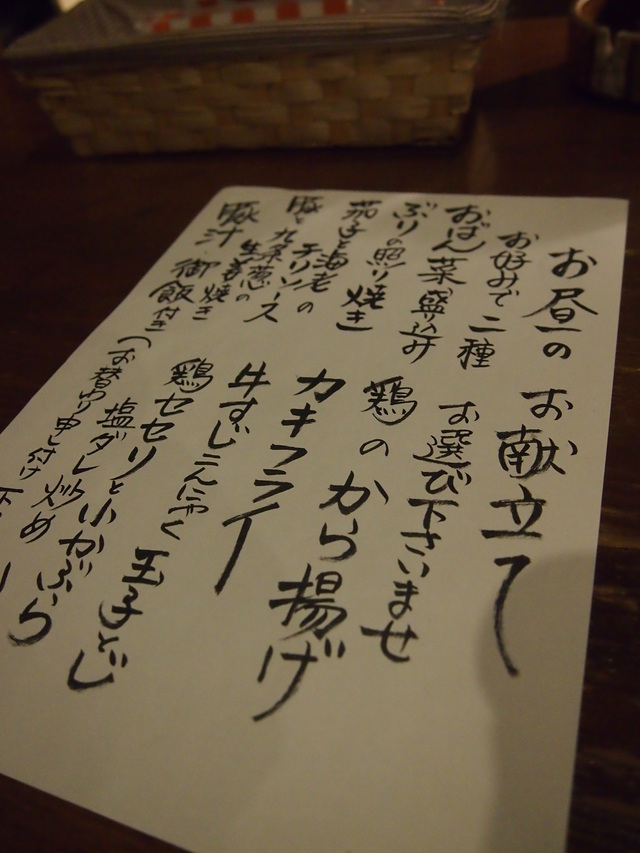 お昼のお献立て
お好みで二種 お選び下さいませ
おばん菜盛込み 鶏のから揚げ
ぶりの照り焼き カキフライ
茄子と海老のチリソース 牛すじこんにゃく玉子とじ
豚と九条葱の生姜焼き 鶏セセリと小かぶら塩ダレ炒め
豚汁 御飯付き(お替わり申し付け下